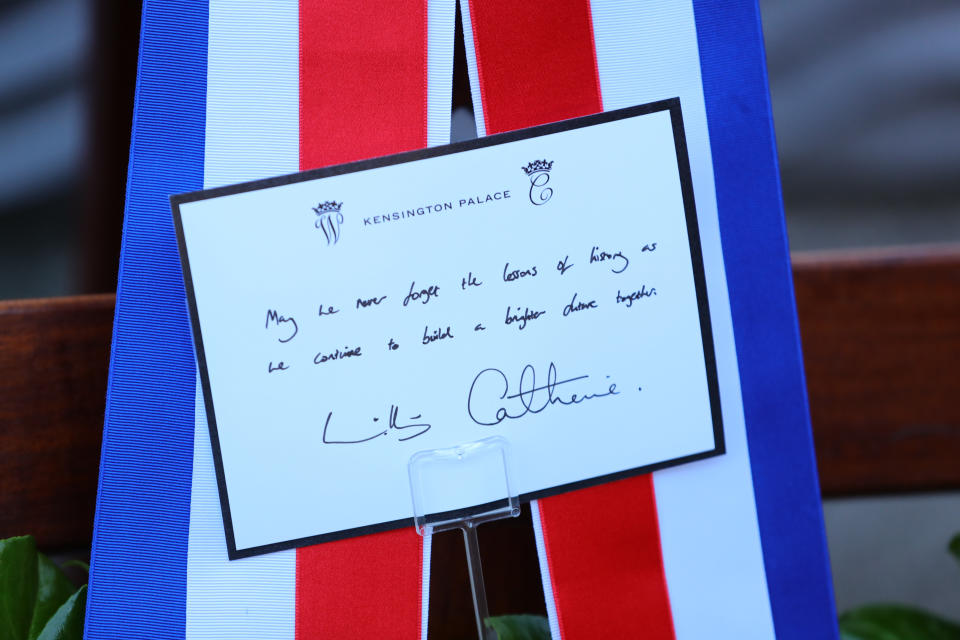 W KENSINGTON PALACE C
May we never forget the lessons of history as
we continue to build a brighter future together.
William Catherine.